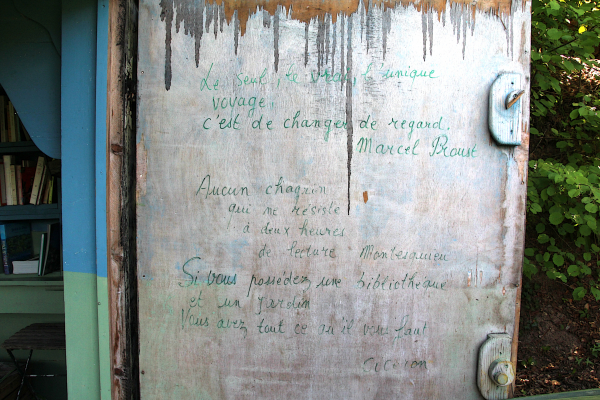 Le seul, le vrai, l'unique
voyage,
c'est de changer de regard.
Marcel Proust
Aucun chagrin
qui me résiste
à deux heures
de lecture Montesquieu
Si vous possédez une bibliothèque
et un jardin
Vous avez tout ce qu'il vous faut
Cicéron